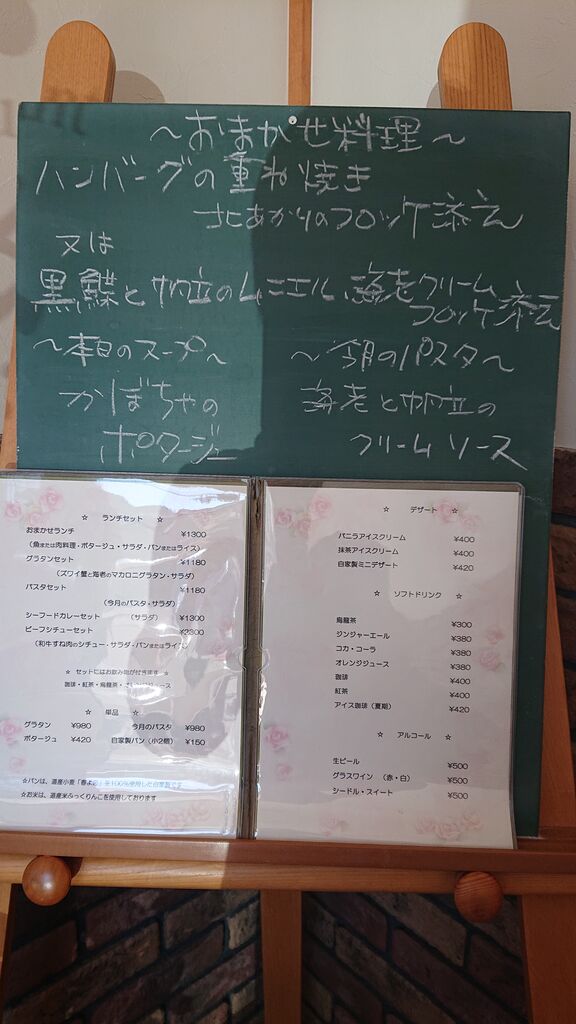 ～おまかせ料理～
ハンバーグの重ね焼き
北あかりのコロッケ添え
又は
黒鰈と帆立のムニエル、海老クリーム
コロッケ添え
～本日のスープ～
かぼちゃの
ポタージュ
～今月のパスタ～
海老と帆立の
クリームソース
☆ ランチセット ☆
おまかせランチ ¥1300
（魚または肉料理・ポタージュ・サラダ・パンまたはライス）
グラタンセット ¥1180
（ズワイ蟹と海老のマカロニグラタン・サラダ）
パスタセット ¥1180
（今月のパスタ・サラダ）
シーフードカレーセット （サラダ） ¥1300
ビーフシチューセット ¥2300
（和牛すね肉のシチュー・サラダ・パンまたはライス）
☆ セットにはお飲み物が付きます ☆
珈琲・紅茶・烏龍茶・オレンジジュース
☆ 単品 ☆
グラタン ¥980 今月のパスタ ¥980
ポタージュ ¥420 自家製パン（小2個） ¥150
☆パンは、道産小麦「春よ恋」を100％使用した自家製です
☆お米は、道産米ふっくりんこを使用しております
☆ デザート ☆
バニラアイスクリーム ¥400
抹茶アイスクリーム ¥400
自家製ミニデザート ¥420
☆ ソフトドリンク ☆
烏龍茶 ¥300
ジンジャーエール ¥380
コカ・コーラ ¥380
オレンジジュース ¥380
珈琲 ¥400
紅茶 ¥400
アイス珈琲（夏期） ¥420
☆ アルコール ☆
生ビール ¥500
グラスワイン （赤・白） ¥500
シードル・スイート ¥500